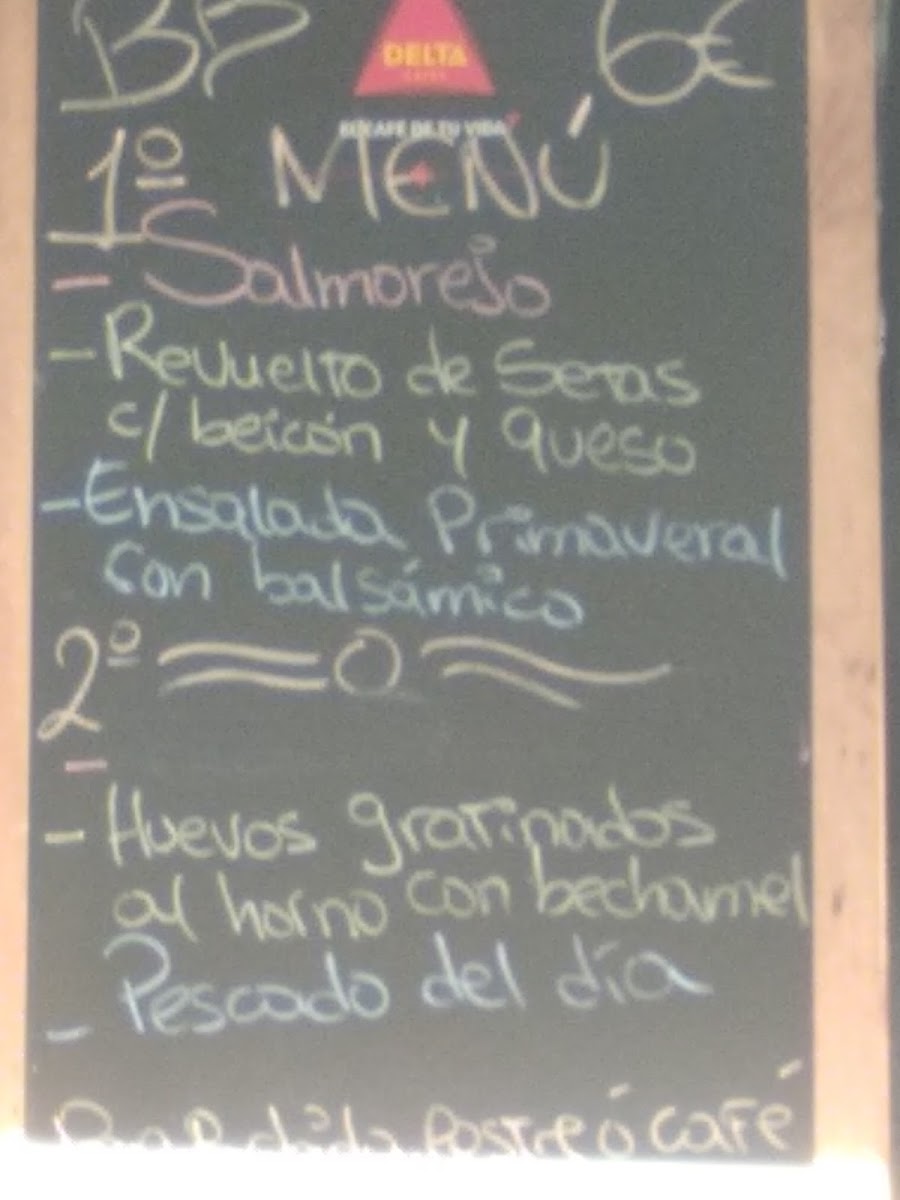 6€
DELTA
CAFÉS
EL CAFÉ DE TU VIDA
1º MENÚ
- Salmorejo
- Revuelto de Setas
c/ beicón y queso
- Ensalada Primaveral
con balsámico
2º
-
- Huevos gratinados
al horno con bechamel
- Pescado del día
Postre ó café